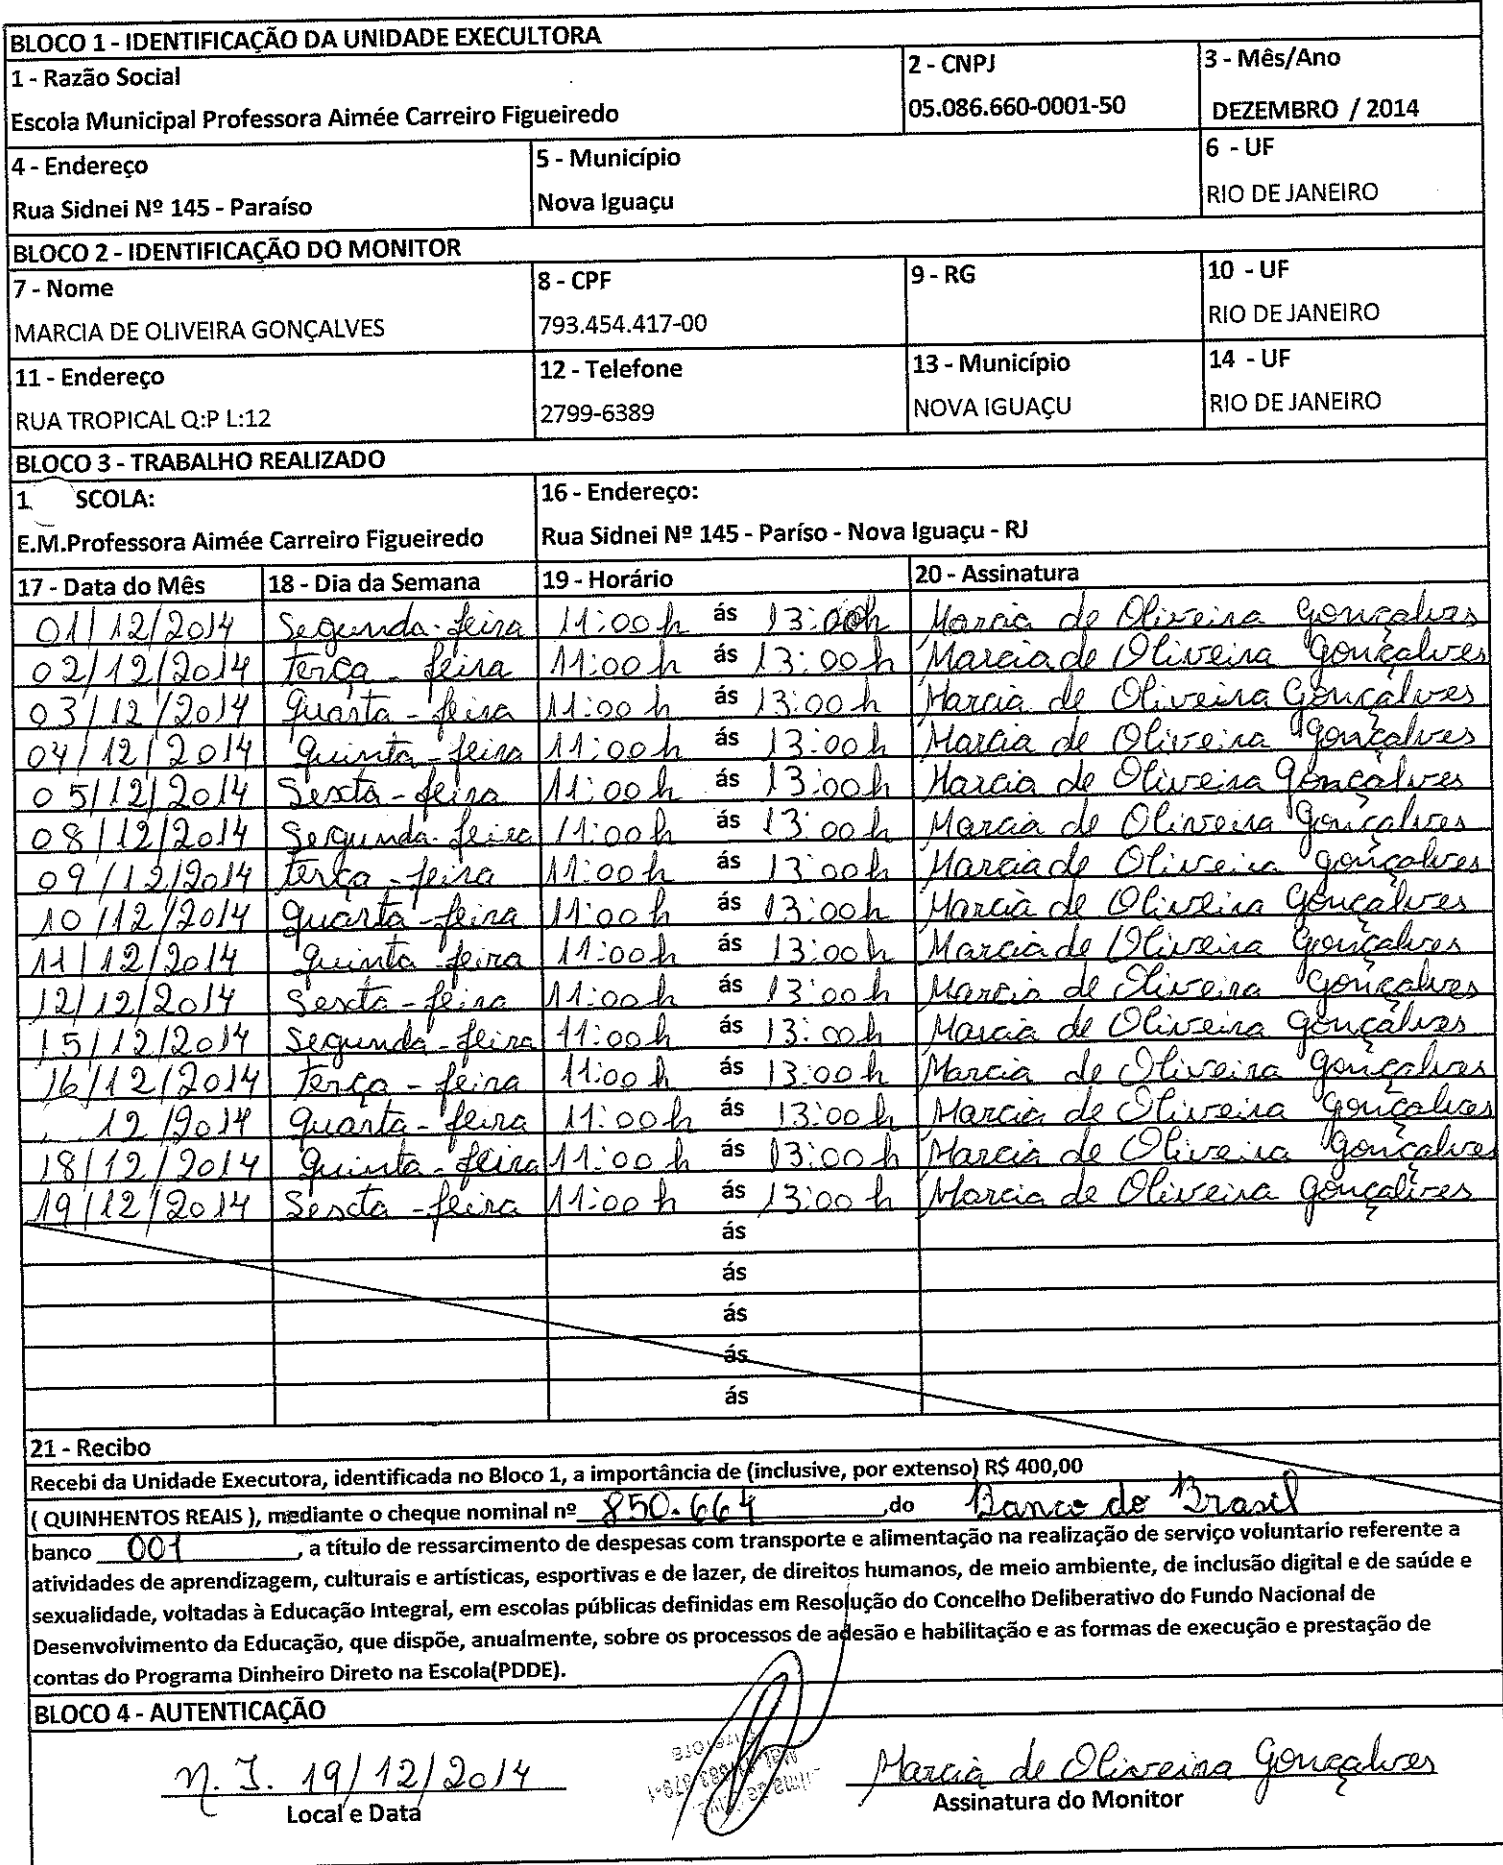 BLOCO 1 - IDENTIFICAÇÃO DA UNIDADE EXECULTORA
1 - Razão Social 2 - CNPJ 3 - Mês/Ano
Escola Municipal Professora Aimée Carreiro Figueiredo 05.086.660-0001-50 DEZEMBRO / 2014
4 - Endereço 5 - Município 6 - UF
Rua Sidnei Nº 145 - Paraíso Nova Iguaçu RIO DE JANEIRO
BLOCO 2 - IDENTIFICAÇÃO DO MONITOR
7 - Nome 8 - CPF 9 - RG 10 - UF
MARCIA DE OLIVEIRA GONÇALVES 793.454.417-00 RIO DE JANEIRO
11 - Endereço 12 - Telefone 13 - Município 14 - UF
RUA TROPICAL Q:P L:12 2799-6389 NOVA IGUAÇU RIO DE JANEIRO
BLOCO 3 - TRABALHO REALIZADO
1 SCOLA: 16 - Endereço:
E.M.Professora Aimée Carreiro Figueiredo Rua Sidnei Nº 145 - Paríso - Nova Iguaçu - RJ
17 - Data do Mês 18 - Dia da Semana 19 - Horário 20 - Assinatura
01/12/2014 Segunda-feira 11:00 h ás 13:00h Marcia de Oliveira Gonçalves
02/12/2014 terça - feira 11:00 h ás 13:00 h Marcia de Oliveira Gonçalves
03/12/2014 quarta - feira 11:00 h ás 13:00 h Marcia de Oliveira Gonçalves
04/12/2014 quinta - feira 11:00 h ás 13:00 h Marcia de Oliveira Gonçalves
05/12/2014 Sexta - feira 11:00 h ás 13:00 h Marcia de Oliveira Gonçalves
08/12/2014 Segunda-feira 11:00 h ás 13:00 h Marcia de Oliveira Gonçalves
09/12/2014 terça - feira 11:00 h ás 13:00 h Marcia de Oliveira Gonçalves
10/12/2014 quarta - feira 11:00 h ás 13:00 h Marcia de Oliveira Gonçalves
11/12/2014 quinta feira 11:00 h ás 13:00 h Marcia de Oliveira Gonçalves
12/12/2014 Sexta - feira 11:00 h ás 13:00 h Marcia de Oliveira Gonçalves
15/12/2014 Segunda - feira 11:00 h ás 13:00 h Marcia de Oliveira Gonçalves
16/12/2014 terça - feira 11:00 h ás 13:00 h Marcia de Oliveira Gonçalves
12/2014 quarta - feira 11:00 h ás 13:00 h Marcia de Oliveira Gonçalves
18/12/2014 quinta - feira 11:00 h ás 13:00 h Marcia de Oliveira Gonçalves
19/12/2014 Sexta - feira 11:00 h ás 13:00 h Marcia de Oliveira Gonçalves
ás
ás
ás
ás
ás
21 - Recibo
Recebi da Unidade Executora, identificada no Bloco 1, a importância de (inclusive, por extenso) R$ 400,00
( QUINHENTOS REAIS ), mediante o cheque nominal nº 850.664 ,do Banco do Brasil
banco 001 , a título de ressarcimento de despesas com transporte e alimentação na realização de serviço voluntario referente a
atividades de aprendizagem, culturais e artísticas, esportivas e de lazer, de direitos humanos, de meio ambiente, de inclusão digital e de saúde e
sexualidade, voltadas à Educação Integral, em escolas públicas definidas em Resolução do Concelho Deliberativo do Fundo Nacional de
Desenvolvimento da Educação, que dispõe, anualmente, sobre os processos de adesão e habilitação e as formas de execução e prestação de
contas do Programa Dinheiro Direto na Escola(PDDE).
BLOCO 4 - AUTENTICAÇÃO
N. I. 19/12/2014 Marcia de Oliveira Gonçalves
Local e Data Assinatura do Monitor